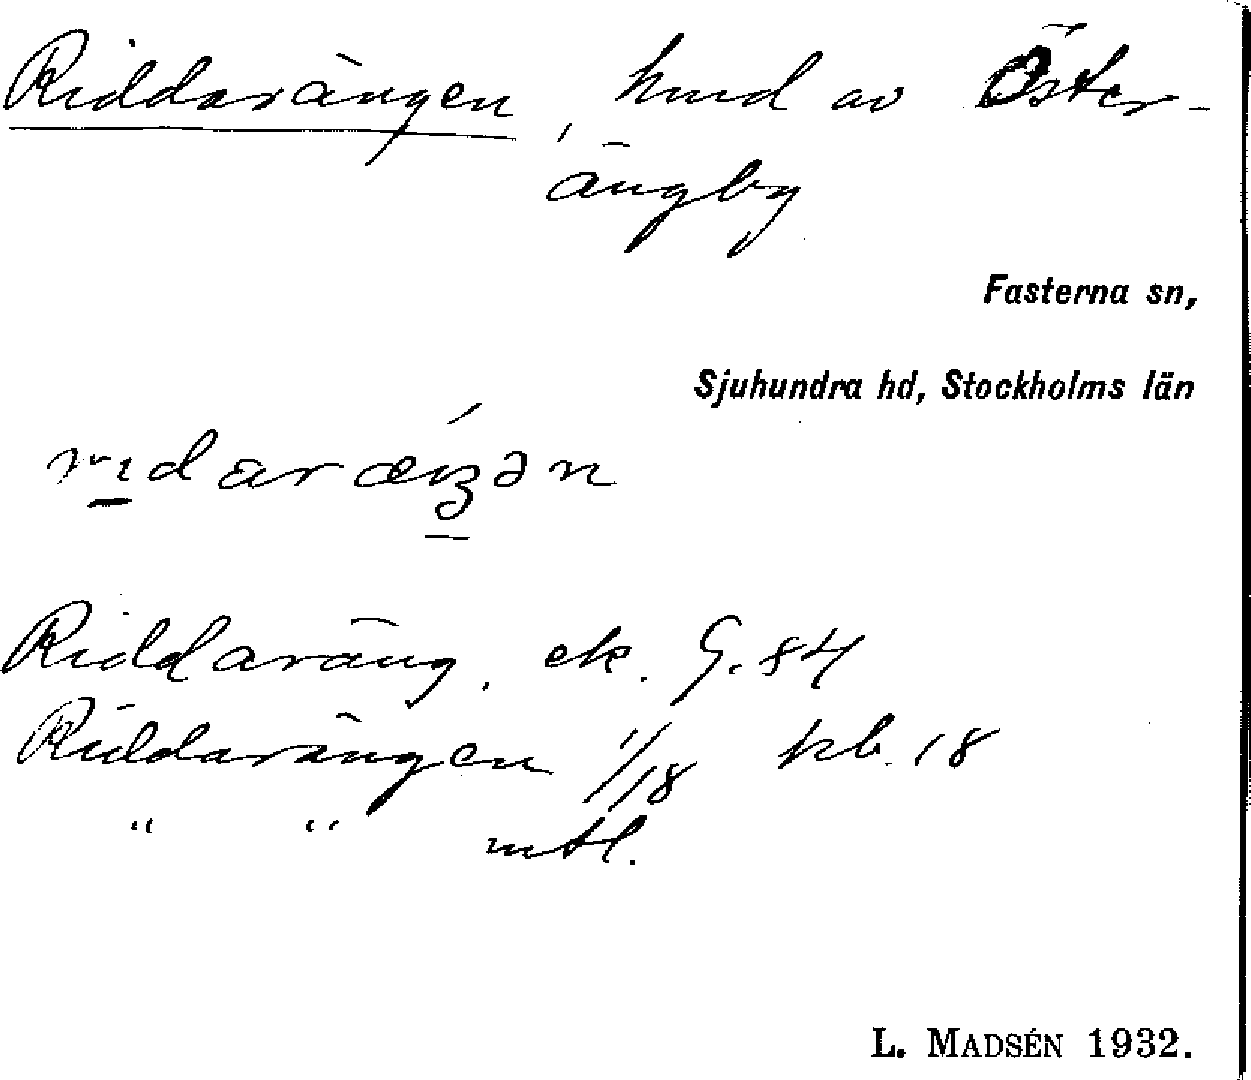 Riddarängen, hmd av Öster-
ängby
Fasterna sn,
Sjuhundra hd, Stockholms län
Riddaräng. ek. G. 84
Riddarängen 1/18 kb. 18
" " mtl.
L. MADSÉN 1932.